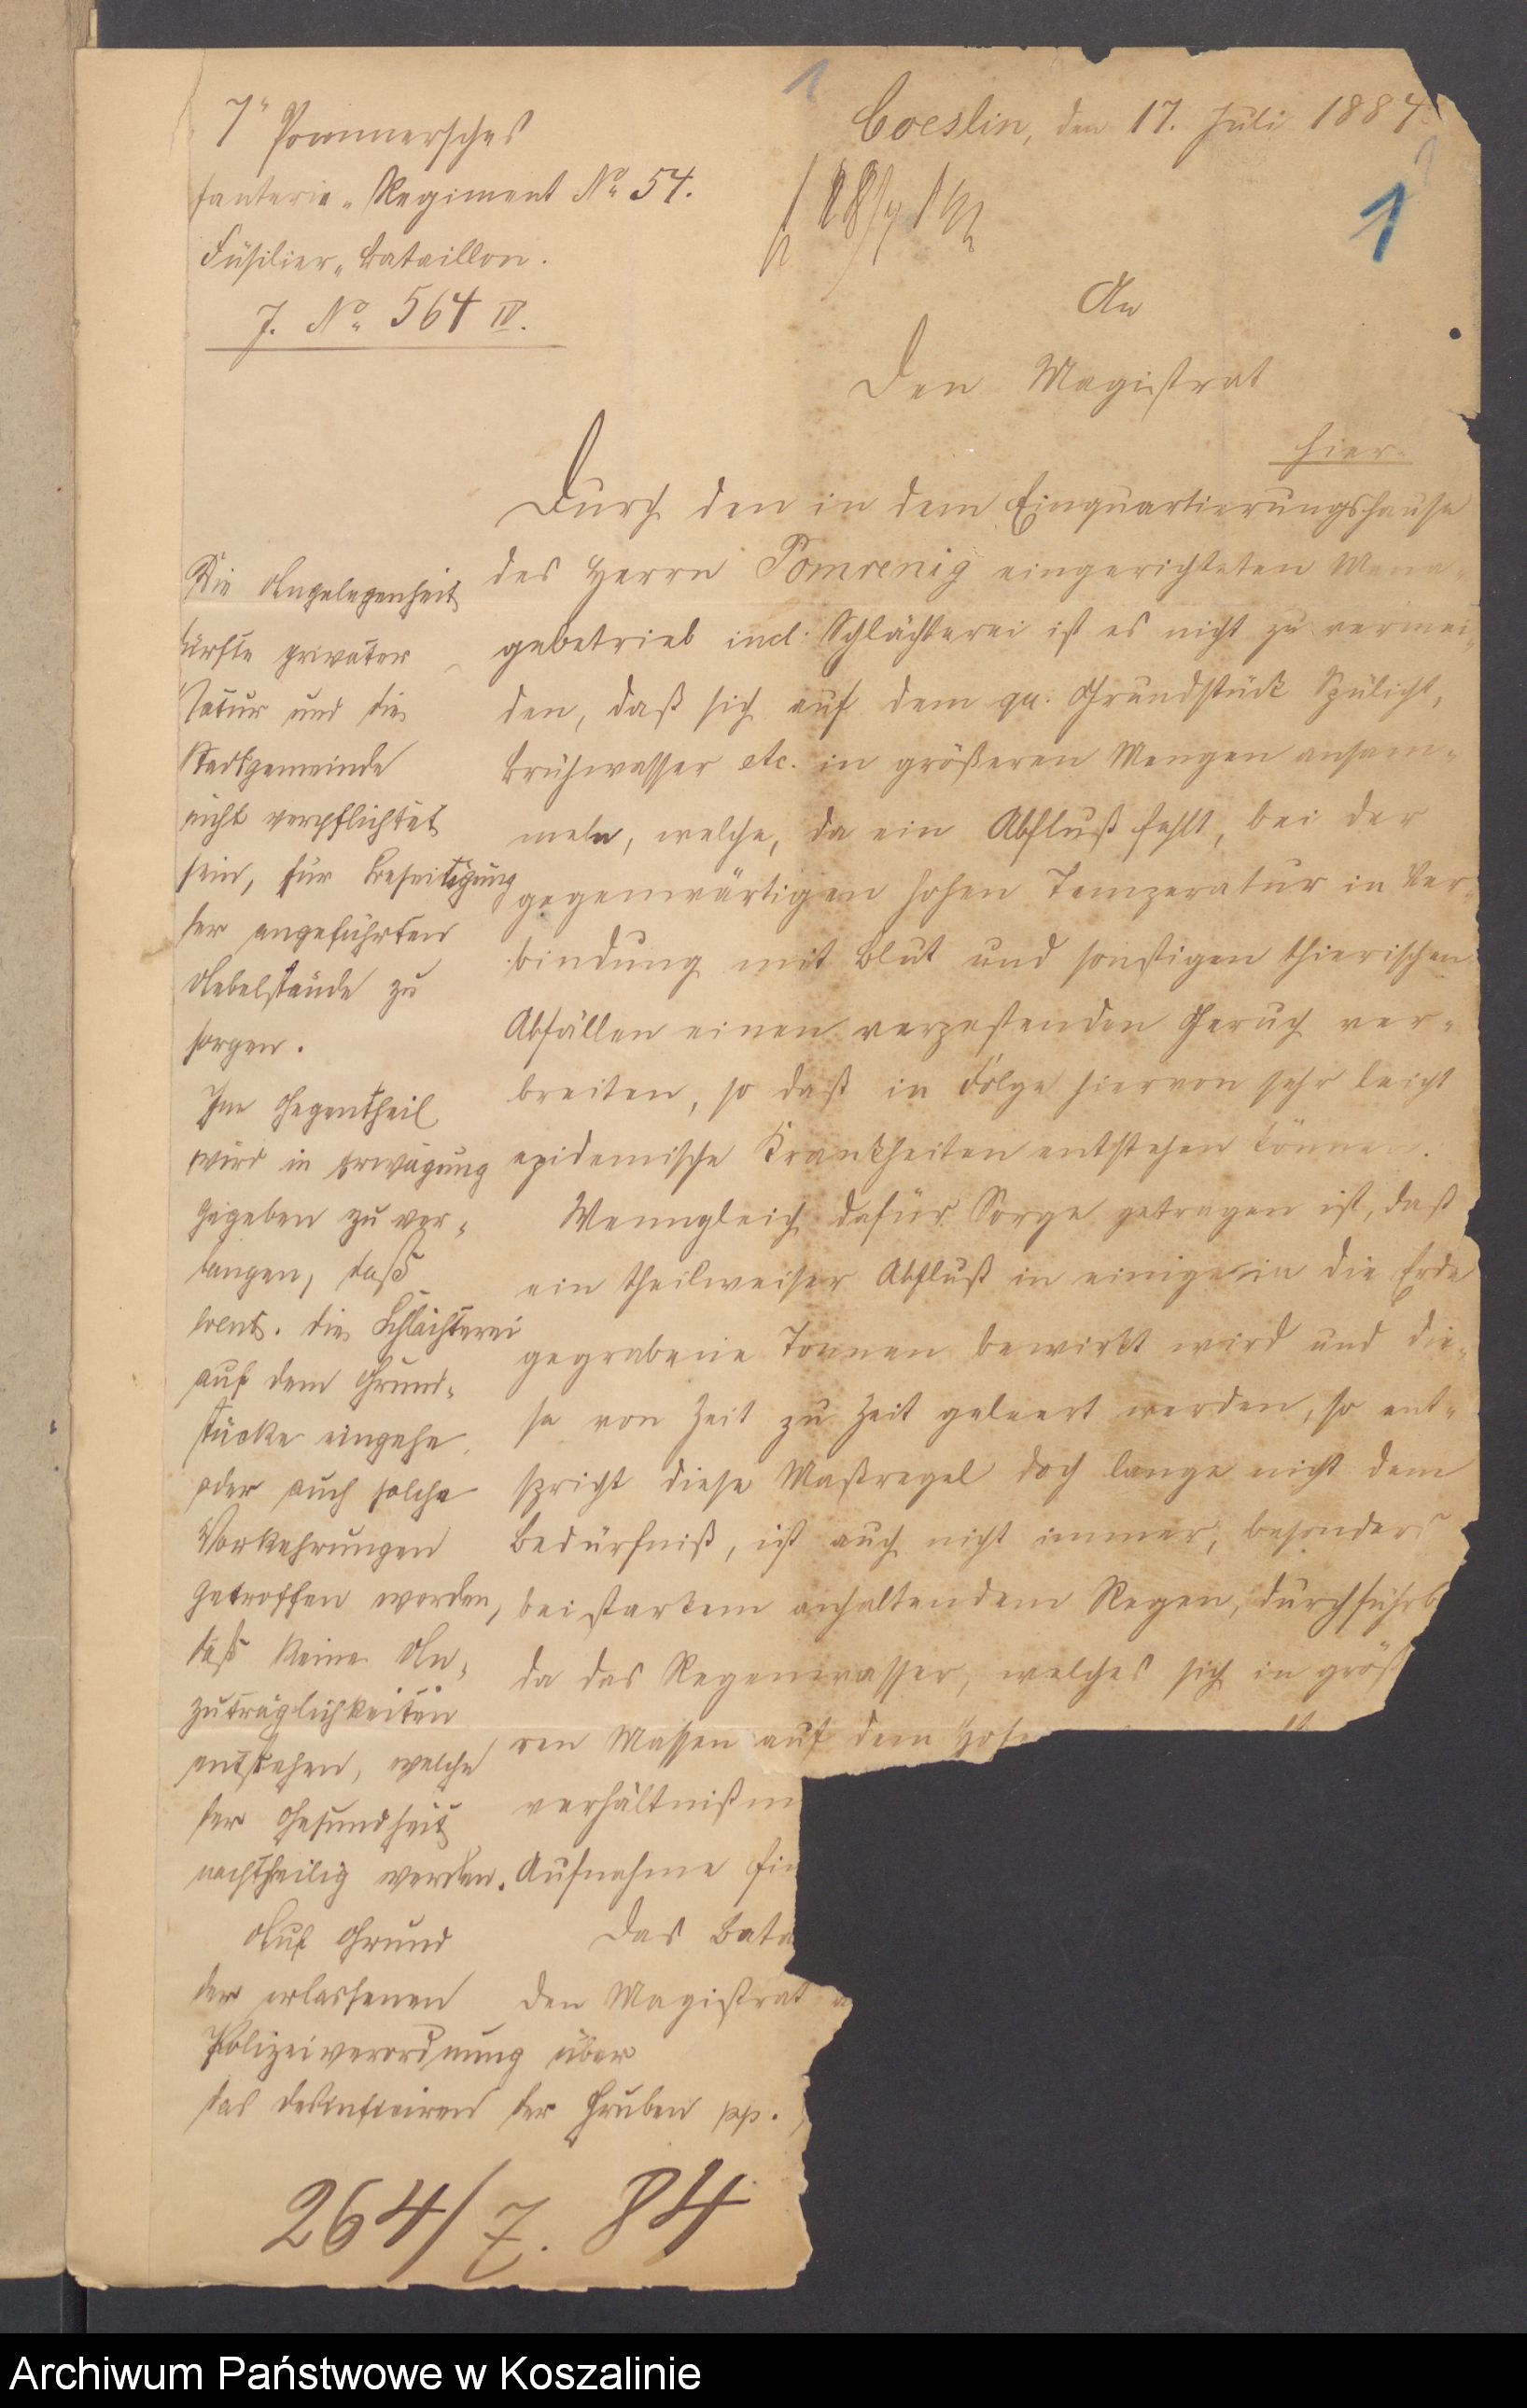 1
7" Pommersches
fanterie-Regiment No 54.
Füsilier-Bataillon.
J. No 564 IV.
Coeslin, den 17. Juli 1884.
1
An
Den Magistrat
hier.
Durch den in dem Einquartierungshause
des Herrn Pomrenig eingerichteten Mena-
gebetrieb incl. Schlächterei ist es nicht zu vermei-
den, daß sich auf dem qu. Grundstück Spülicht,
Brühwasser etc. in größeren Mengen ansam-
meln, welche, da ein Abfluß fehlt, bei der
gegenwärtigen hohen Temperatur in Ver-
bindung mit Blut und sonstigen thierischen
Abfällen einen verpestenden Geruch ver-
breiten, so daß in Folge hiervon sehr leicht
epidemische Krankheiten entstehen können.
Wenngleich dafür Sorge getragen ist, daß
ein theilweiser Abfluß in einige in die Erde
gegrabene Tonnen bewirkt wird und die-
se von Zeit zu Zeit geleert werden, so ent-
spricht diese Maßregel doch lange nicht dem
Bedürfniß, ist auch nicht immer, besonders
bei starkem anhaltendem Regen, durchführb
da das Regenwasser, welches sich in größ
ren Massen auf dem Hofe
verhältnißm
Aufnahme fin
Das Bata
den Magistrat
Die Angelegenheit
dürfte privater
Natur und die
Stadtgemeinde
nicht verpflichtet
sein, für Beseitigung
der angeführten
Uebelstände zu
sorgen.
Im Gegentheil
wird in Erwägung
gegeben zu ver-
langen, daß
event. die Schlächterei
auf dem Grund-
stücke eingehe,
oder auch solche
Vorkehrungen
getroffen werden,
daß keine Un-
zuträglichkeiten
entstehen, welche
der Gesundheit
nachtheilig werden.
Auf Grund
der erlassenen
Polizeiverordnung über
das Desinficiren der Gruben pp.
264/7. 84
Archiwum Państwowe w Koszalinie